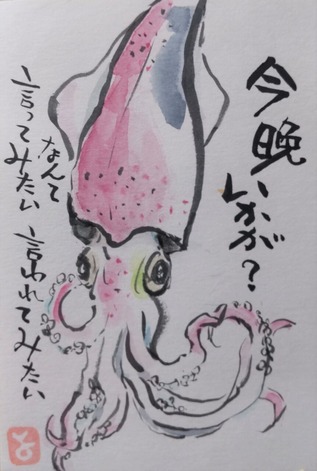 今晩
いかが？
なんて
言ってみたい
言われてみたい